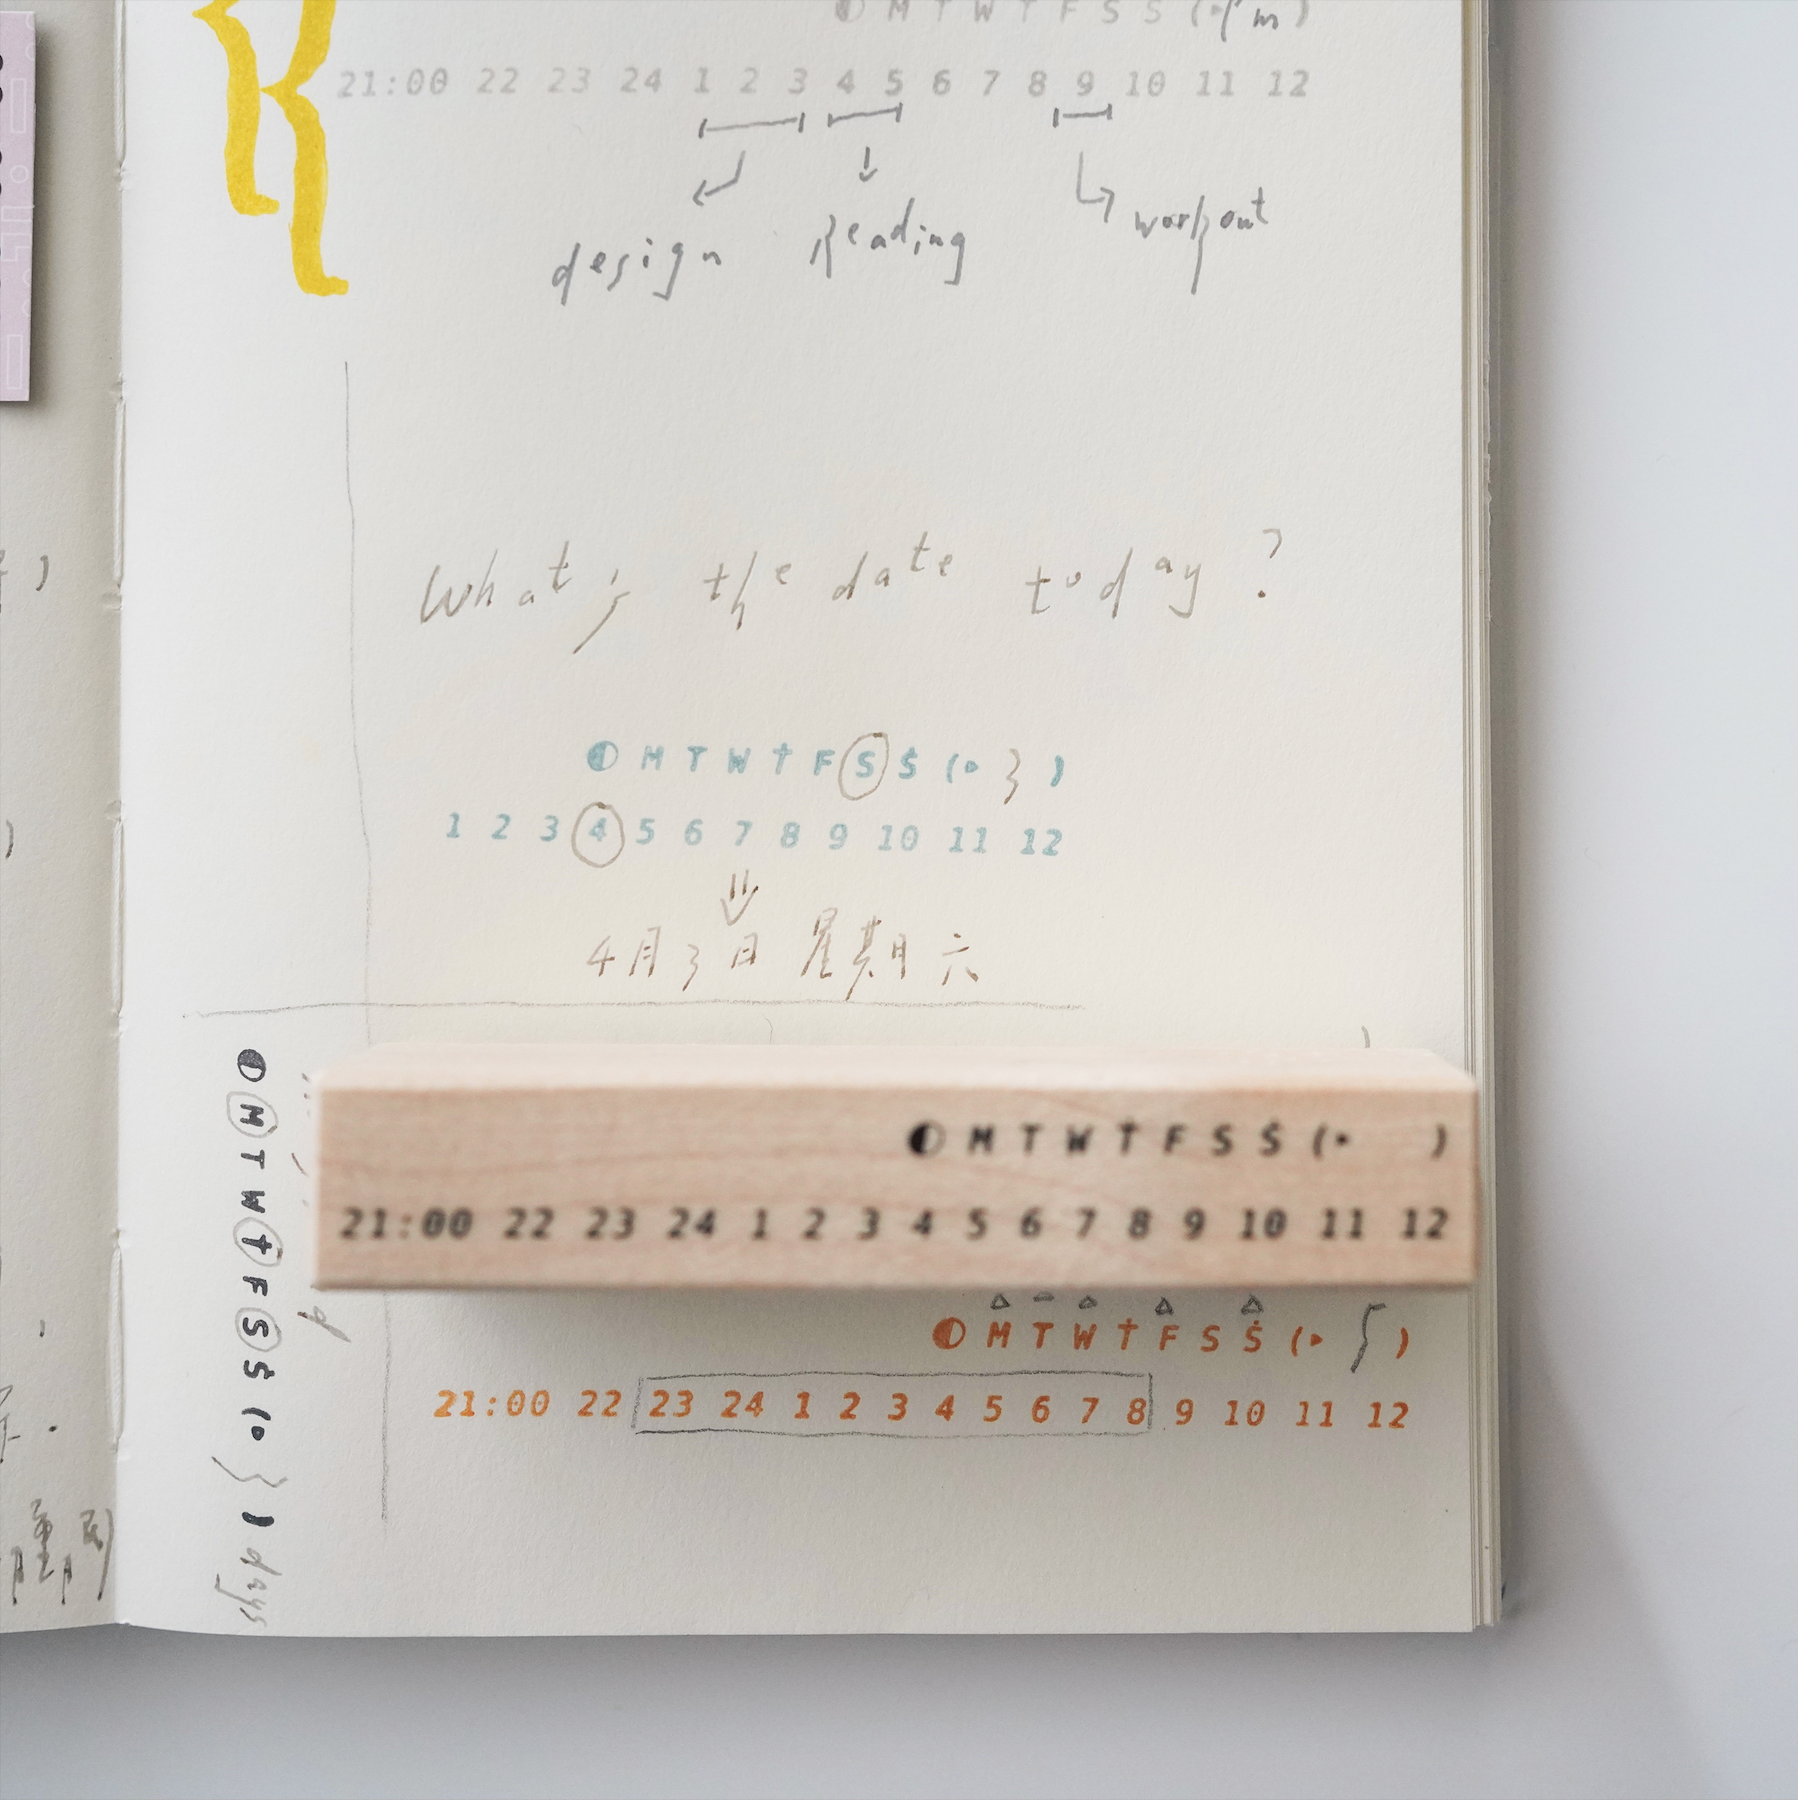 M T W T F S S ( 'm )
21:00 22 23 24 1 2 3 4 5 6 7 8 9 10 11 12
design reading workout
What's the date today?
M T W T F S S ( 3 )
1 2 3 4 5 6 7 8 9 10 11 12
4月3日 星期六
M T W T F S S ( )
21:00 22 23 24 1 2 3 4 5 6 7 8 9 10 11 12
M T W T F S S ( )
21:00 22 23 24 1 2 3 4 5 6 7 8 9 10 11 12
M T W T F S S ( 3 ) days